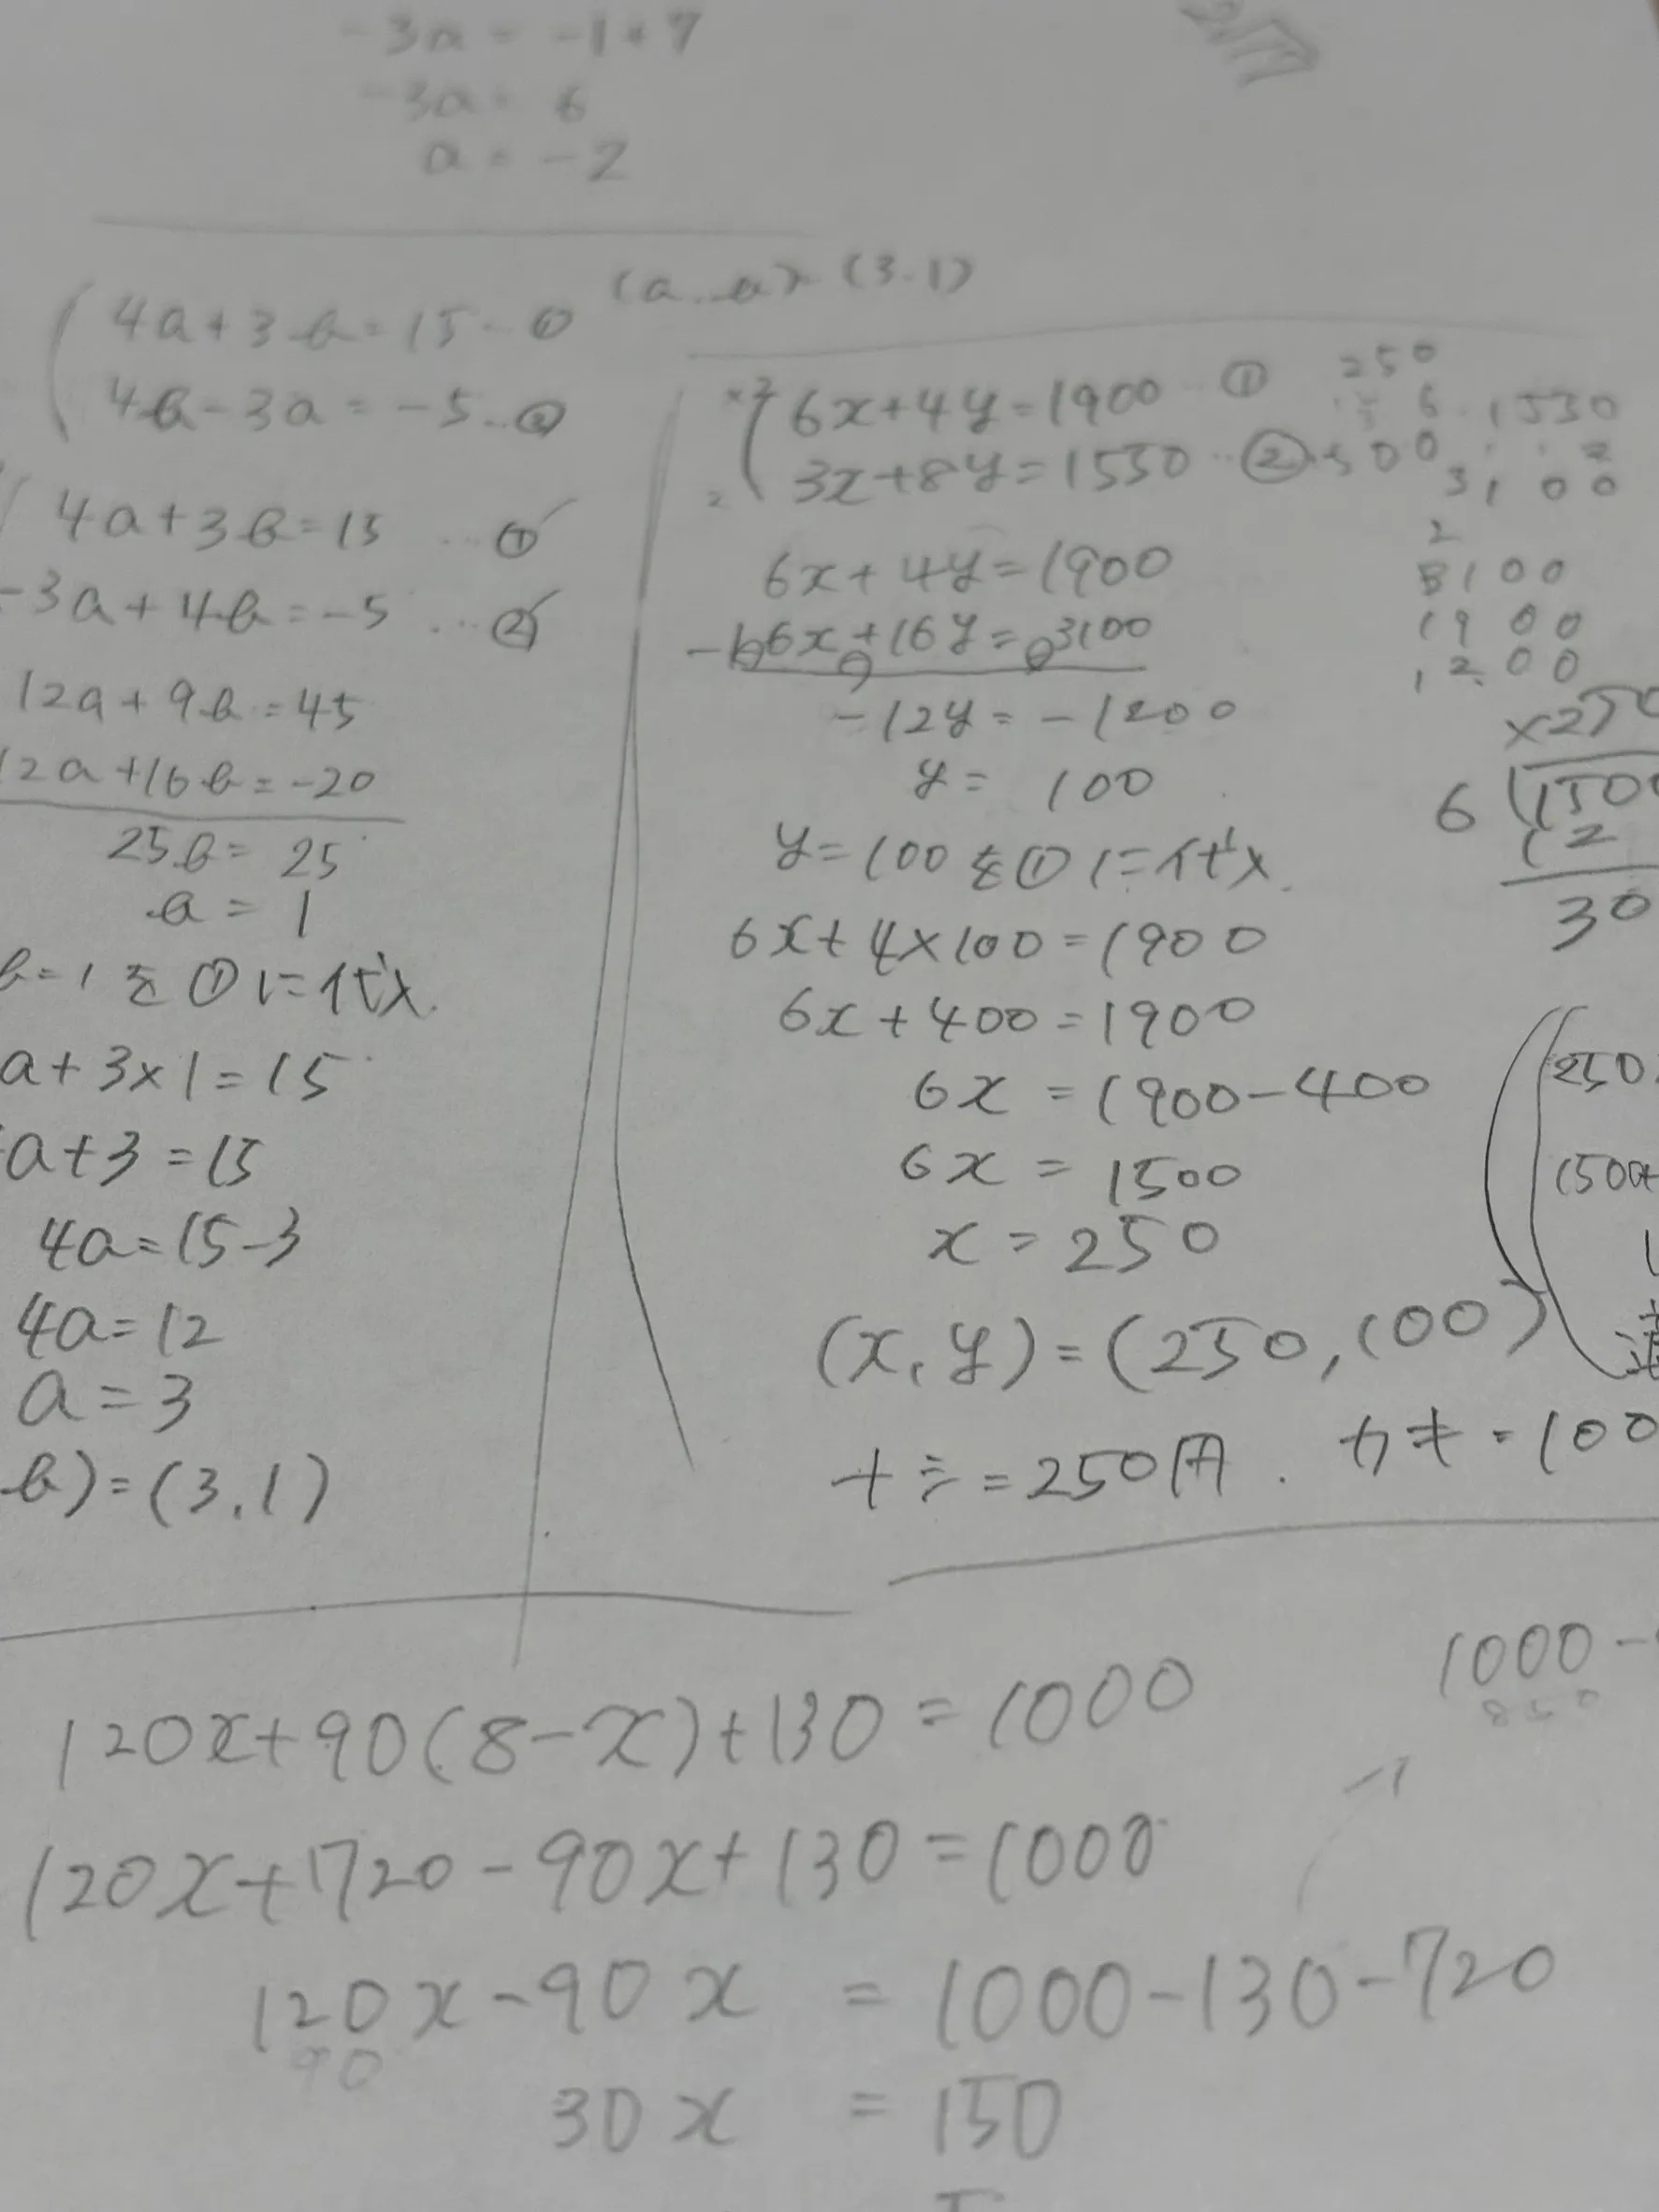 -3a = -1+7
-3a = 6
a = -2
(a, b) = (3.1)
4a+3b=15…①
4b-3a=-5…②
4a+3b=15 …①
-3a+4b=-5 …②
12a+9b=45
12a+16b=-20
25b=25
b=1
b=1を①に代入.
a+3×1=15
a+3=15
4a=15-3
4a=12
a=3
b)=(3,1)
6x+4y=1900…①
3x+8y=1550…②
6x+4y=1900
6x+16y=3100
-12y=-1200
y=100
y=100を①に代入.
6x+4×100=1900
6x+400=1900
6x=1900-400
6x=1500
x=250
(x,y)=(250,100)
ナシ=250円. カキ=100
250
1530
3100
3100
1900
1200
×250
6 1500
12
30
250
1500+
120x+90(8-x)+130=1000
120x+720-90x+130=1000
120x-90x=1000-130-720
90
30x=150
1000-
850